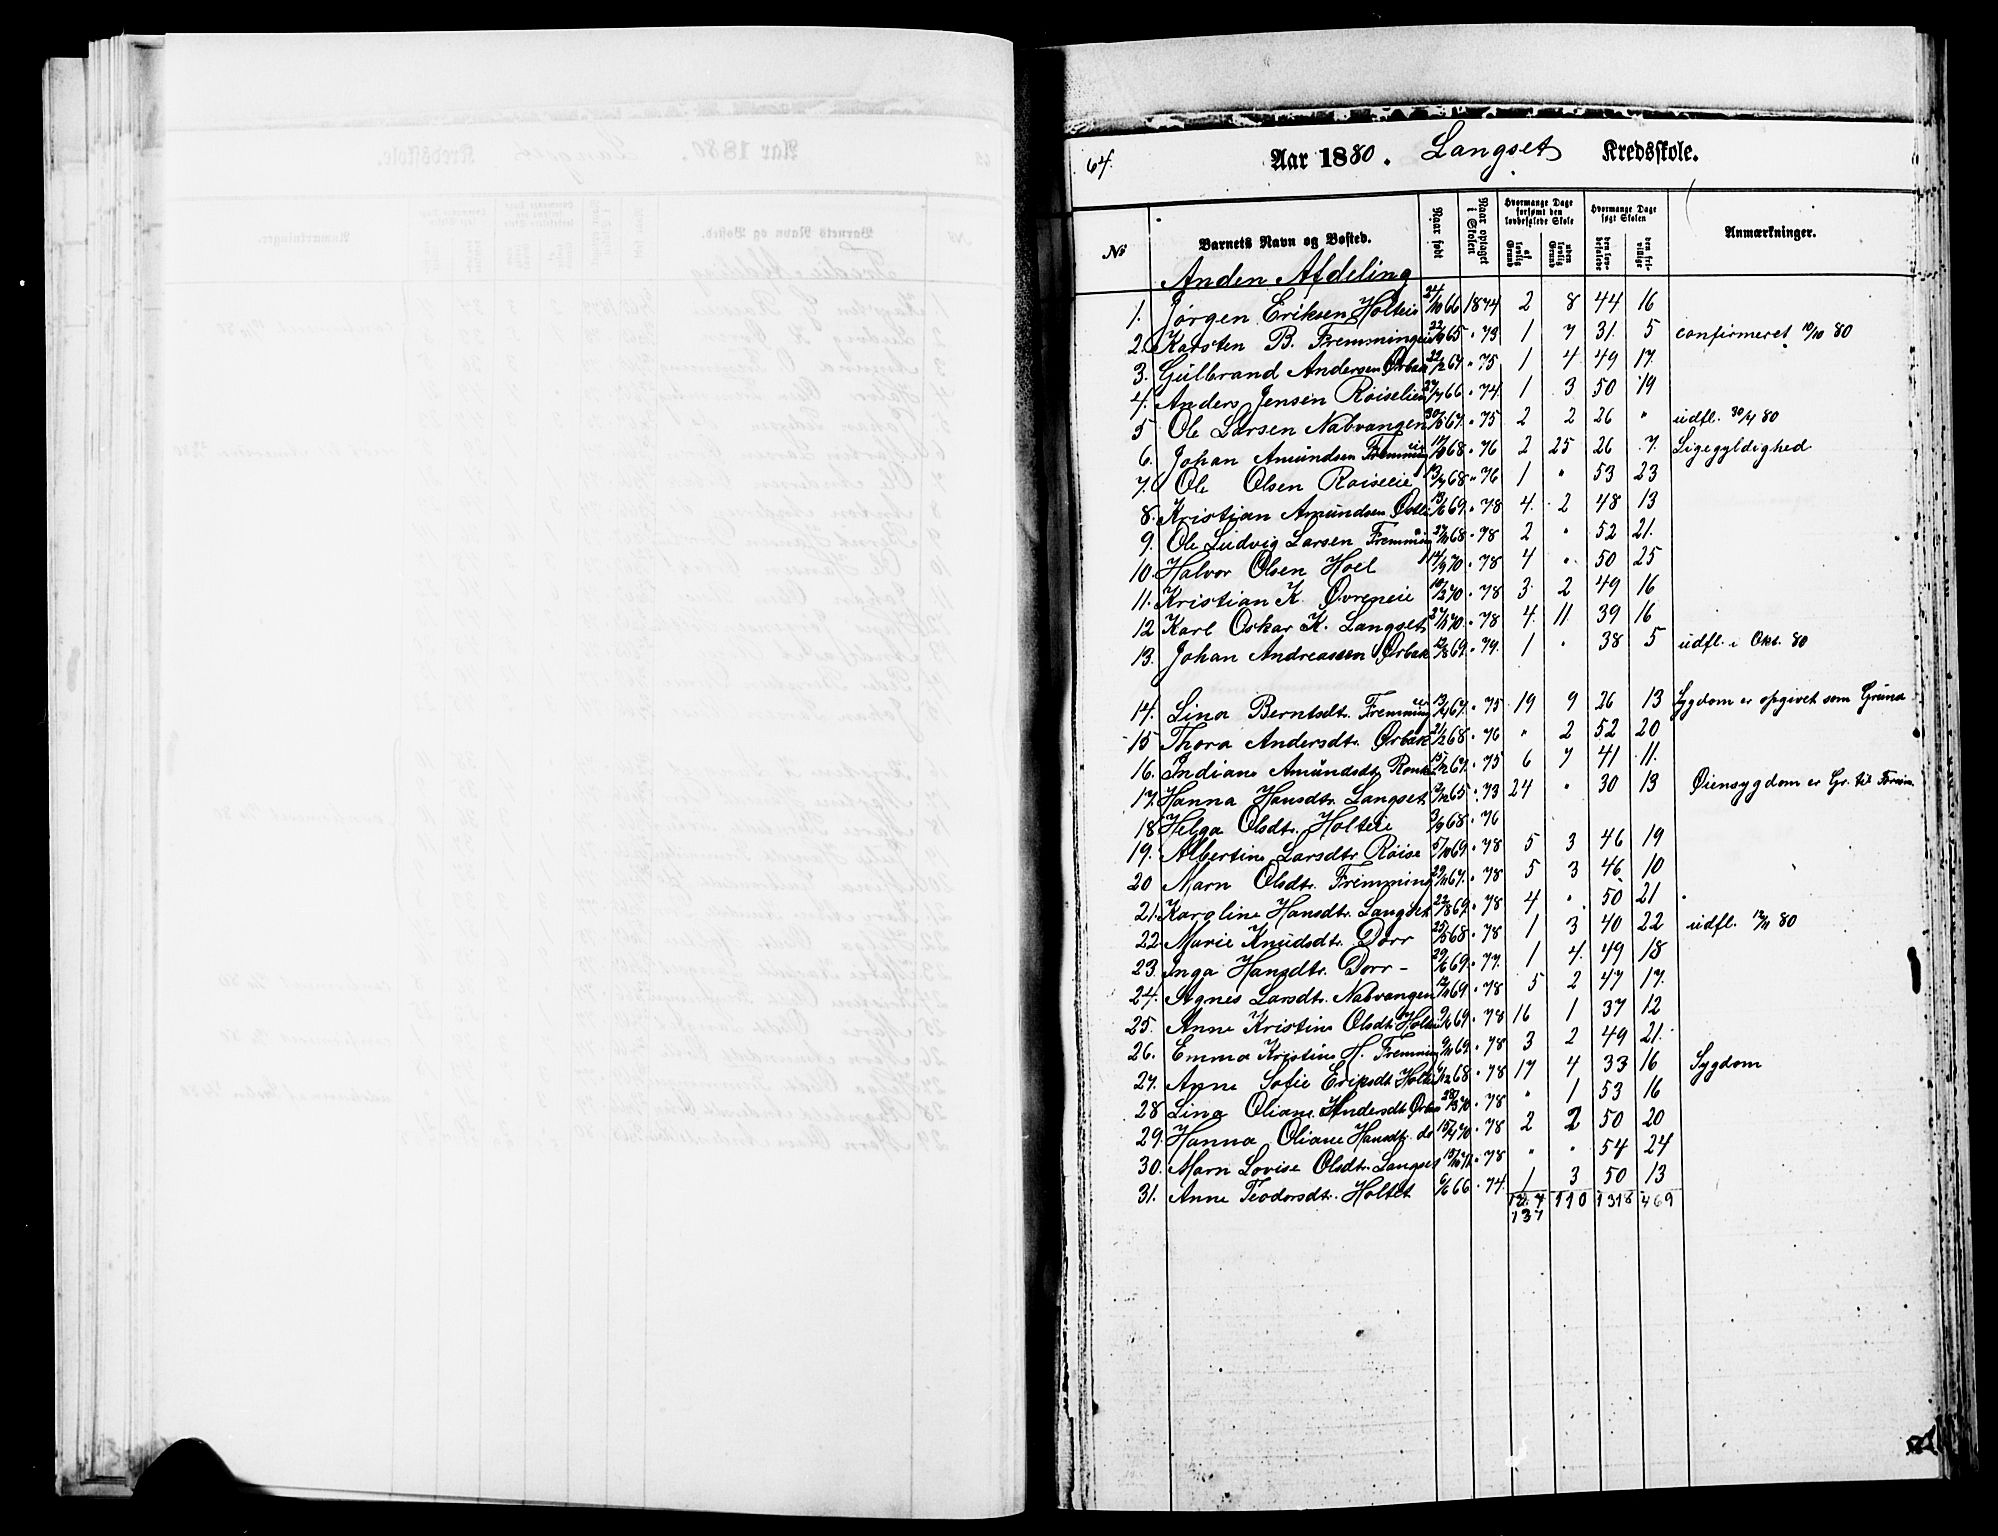 64.
Aar 1880. Langset Kredsskole.
No
Barnets Navn og Bosted.
Naar født
Naar optaget i Skolen
Hvormange Dage forsømt den lovbefalede Skole
af lovlig Grund
uden lovlig Grund
Hvormange Dage søgt Skolen
den lovbefalede
den frivillige
Anmærkninger.
Anden Afdeling
1. Jørgen Eriksen Holteie 24/10 66 1874 2 8 44 16
2. Karsten B. Fremmingeie 65 " 73 1 7 31 5 confirmeret 10/10 80
3. Gulbrand Andersen Ørbæk 22/2 67 " 75 1 4 49 17
4. Anders Jensen Røiselien 27/7 66 " 74 1 3 50 19
5 Ole Larsen Nabvangen 30/5 67 " 75 2 2 26 " udfl. 30/4 80
6. Johan Amundsen Fremming 68 " 76 2 25 26 7. Ligegyldighed
7. Ole Olsen Røiseeie 13/7 68 " 76 1 " 53 23
8. Kristian Amundsen 13/6 69 " 78 4 2 48 13
9. Ole Ludvig Larsen Fremming 68 " 78 2 " 52 21.
10. Halvor Olsen Hoel 14/3 70 " 78 4 " 50 25
11. Kristian K. Øvreneie 10/2 70 " 78 3 2 49 16
12 Karl Oskar K. Langset 70 " 78 4. 11. 39 16
13. Johan Andreassen Ørbæk 12/8 69 " 79. 1 " 38 5 udfl. i Okt. 80
14. Lina Berntsdtr. Fremming 67 " 75 19 9 26 13 Sygdom er opgivet som Grund
15 Thora Andersdtr. Ørbæk 21/2 68 " 76 " 2 52 20
16. Indiane Amundsdtr. 67 " 75 6 7 41 11.
17. Hanna Hansdtr. Langset 2/12 65 " 73 24 " 30 13 Øiensygdom er Gr. til
18 Helga Olsdtr. Holteie 3/9 68 " 76
19. Albertine Larsdtr Røise 5/10 69 " 78 5 3 46 19
20 Marn Olsdtr. Fremming 67. " 78 5 3 46 10
21. Karoline Hansdtr. Langset 22/8 69 " 78 4 " 50 21
22 Marie Knudsdtr. Dorr 25/5 68 " 78 1 3 40 22 udfl. 12/11 80
23. Inga Hansdtr. Dorr - 29/6 69. " 77. 1 4. 49 18
24. Agnes Larsdtr. Nabvangen 69 " 78 5 2 47 17.
25. Anne Kristine Olsdtr. 69 " 78 16 1 37 12
26. Emma Kristine H. Fremming 69 " 78 3 2 49 21.
27. Anne Sofie Eriksdtr 68 " 78 17 4 33 16 Sygdom
28 Lina Oliane Andersdtr 70 " 78 " 1 53 16
29. Hanna Oliane Hansdtr. do 15/4 70 " 78 2 2 50 20
30. Marn Lovise Olsdtr. Langset " 78 " " 54 24
31. Anne Teodorsdtr. Holtet 6/6 66 " 74. 1 3 50 13
137 110 1318 469